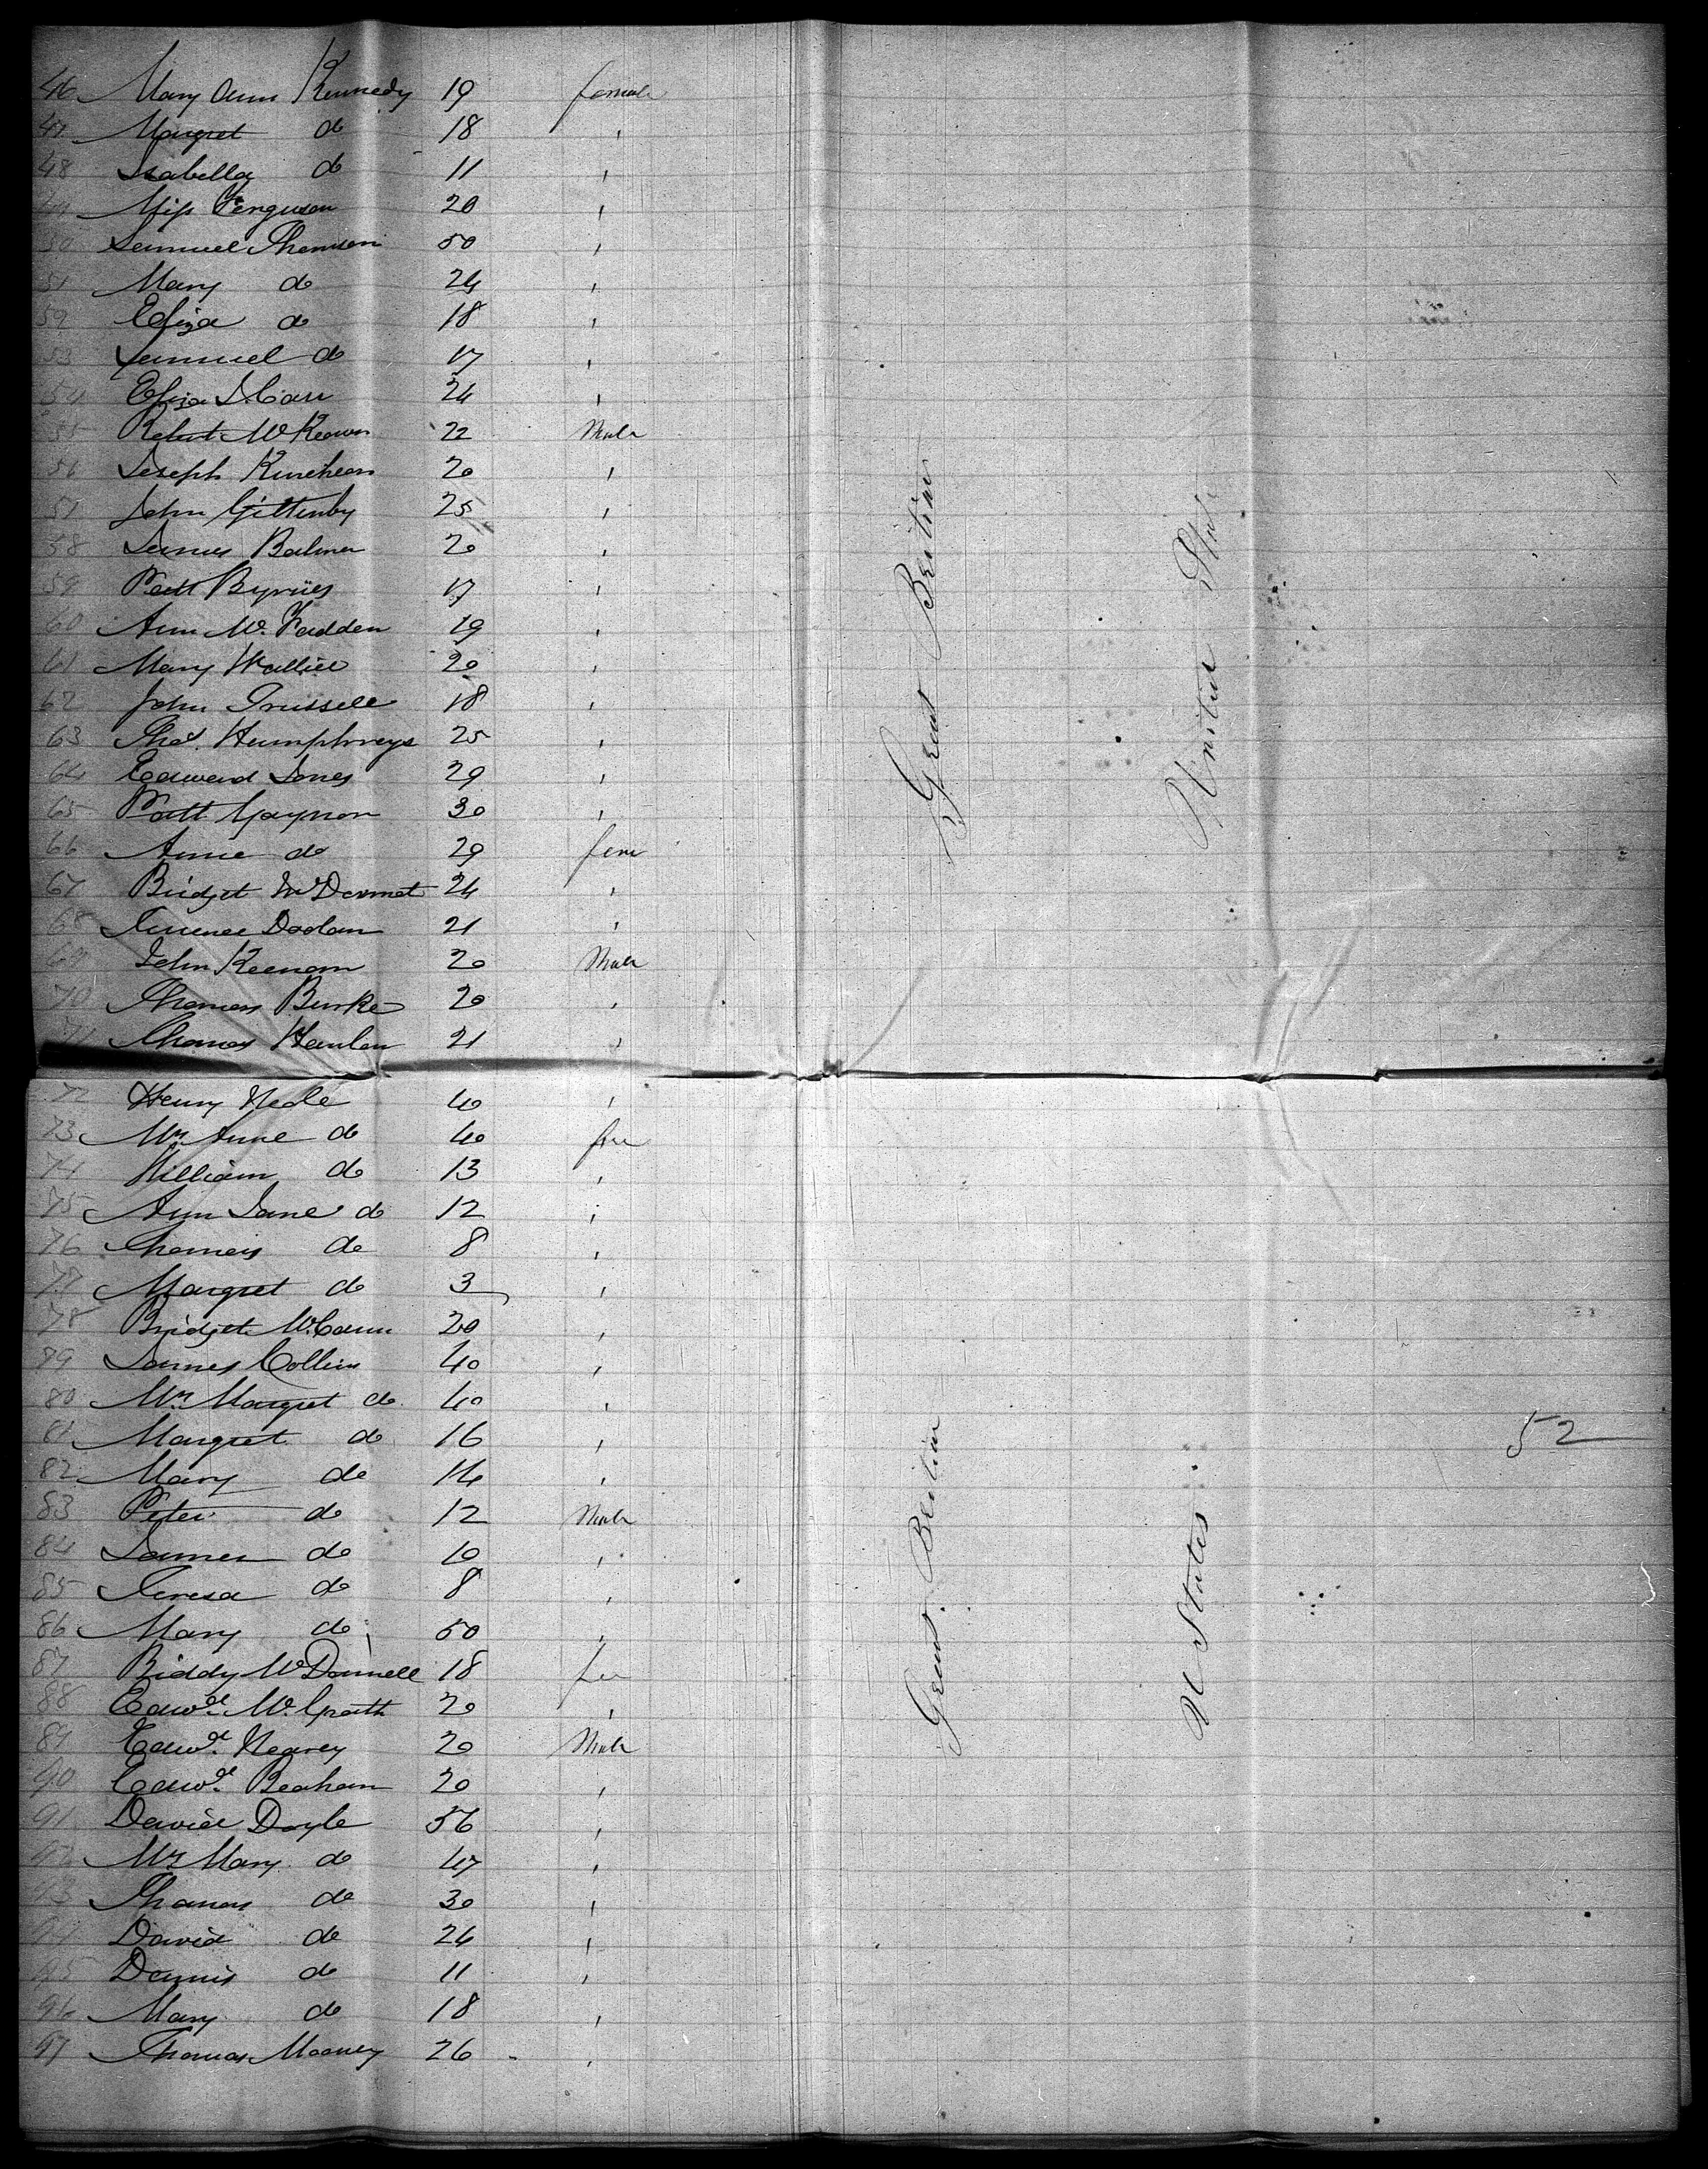 46 Mary Ann Kennedy 19 female
47 Margret do 18 "
48 Isabella do 11 "
49 Miss Ferguson 20 "
50 Samuel Thomson 50 "
51 Mary do 24 "
52 Eliza do 18 "
53 Samuel do 17 "
54 Eliza J. Carr 24 "
55 Robert McKeown 22 Male
56 Joseph 20 "
57 John Gittenby 25 "
58 James Balmer 20 "
59 Patt Byrnes 17 "
60 Ann McFadden 19 "
61 Mary 20 "
62 John Trussell 18 "
63 Thos. Humphreys 25 "
64 Edward Jones 29 "
65 Patt Gaynor 30 "
66 Anne do 29 fem
67 Bridget McDermot 24 "
68 Terence Doolan 21 "
69 John Keenan 20 Male
70 Thomas Burke 20 "
71 Thomas Hanlon 21 "
72 Henry Neale 40 "
73 Mrs Anne do 40 fem
74 William do 13 "
75 Ann Jane do 12 "
76 Thomas do 8 "
77 Margret do 3 "
78 Bridget McCann 20 "
79 James Collins 40 "
80 Mrs Margret do 40 "
81 Margret do 16 "
82 Mary do 14 "
83 Peter do 12 Male
84 James do 10 "
85 Teresa do 8 "
86 Mary do 50 "
87 Biddy McDonnell 18 fe
88 Edwd. McGrath 20 "
89 Edwd. Nearey 20 Male
90 Edwd. Beahan 20 "
91 David Doyle 56 "
92 Mrs Mary do 47 "
93 Thomas do 30 "
94 David do 24 "
95 Dennis do 11 "
96 Mary do 18 "
97 Thomas Mooney 26 "
Great Britian
United State
Great Britian
U States
52